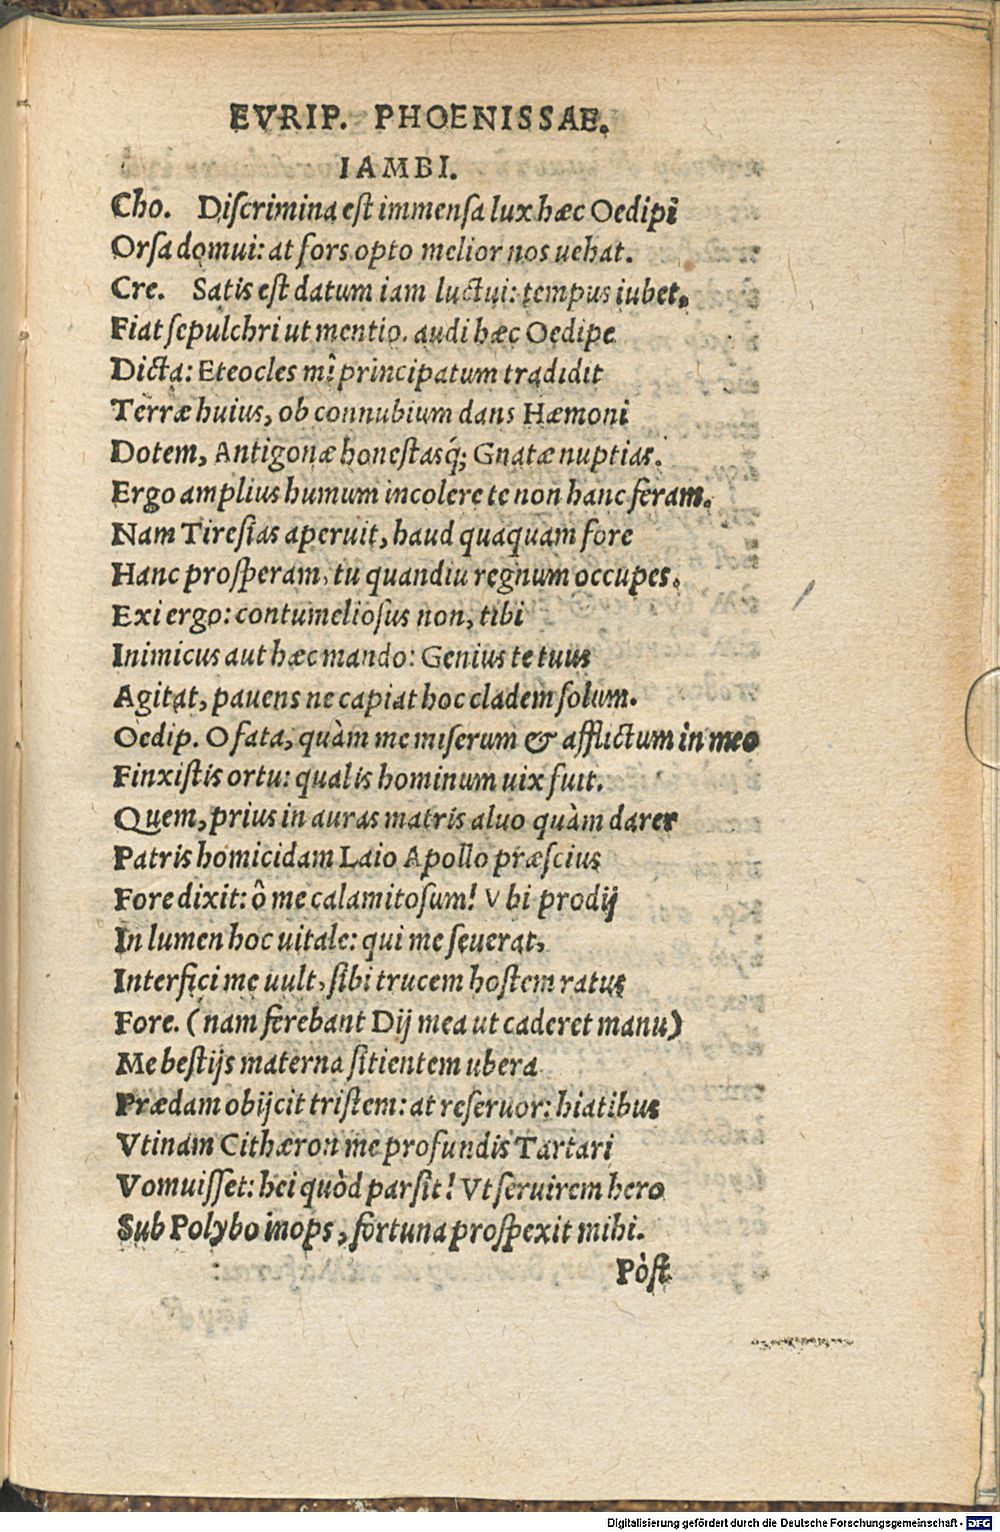 EVRIP. PHOENISSAE.
IAMBI.
Cho. Diſcrimina eſt immenſa lux hæc Oedipi
Orſa domui: at ſors opto melior nos uehat.
Cre. Satis eſt datum iam luctui: tempus iubet,
Fiat ſepulchri ut mentio. audi hæc Oedipe
Dicta: Eteocles mî principatum tradidit
Terræ huius, ob connubium dans Hæmoni
Dotem, Antigonæ honeſtasq́; Gnatæ nuptias.
Ergo amplius humum incolere te non hanc feram.
Nam Tireſias aperuit, haud quaquam fore
Hanc proſperam, tu quandiu regnum occupes.
Exi ergo: contumelioſus non, tibi
Inimicus aut hæc mando: Genius te tuus
Agitat, pauens ne capiat hoc cladem ſolum.
Oedip. O fata, quàm me miſerum & afflictum in meo
Finxiſtis ortu: qualis hominum uix fuit.
Quem, prius in auras matris aluo quàm darer
Patris homicidam Laio Apollo præſcius
Fore dixit: ô me calamitoſum! Vbi prodij
In lumen hoc uitale: qui me ſeuerat,
Interfici me uult, ſibi trucem hoſtem ratus
Fore. (nam ferebant Dij mea ut caderet manu)
Me beſtijs materna ſitientem ubera
Prædam obijcit triſtem: at reſeruor: hiatibus
Vtinam Cithæron me profundis Tartari
Vomuiſſet: hei quòd parſit! Vt ſeruirem hero
Sub Polybo inops, fortuna proſpexit mihi.
Pòſt
Digitalisierung gefördert durch die Deutsche Forschungsgemeinschaft - DFG